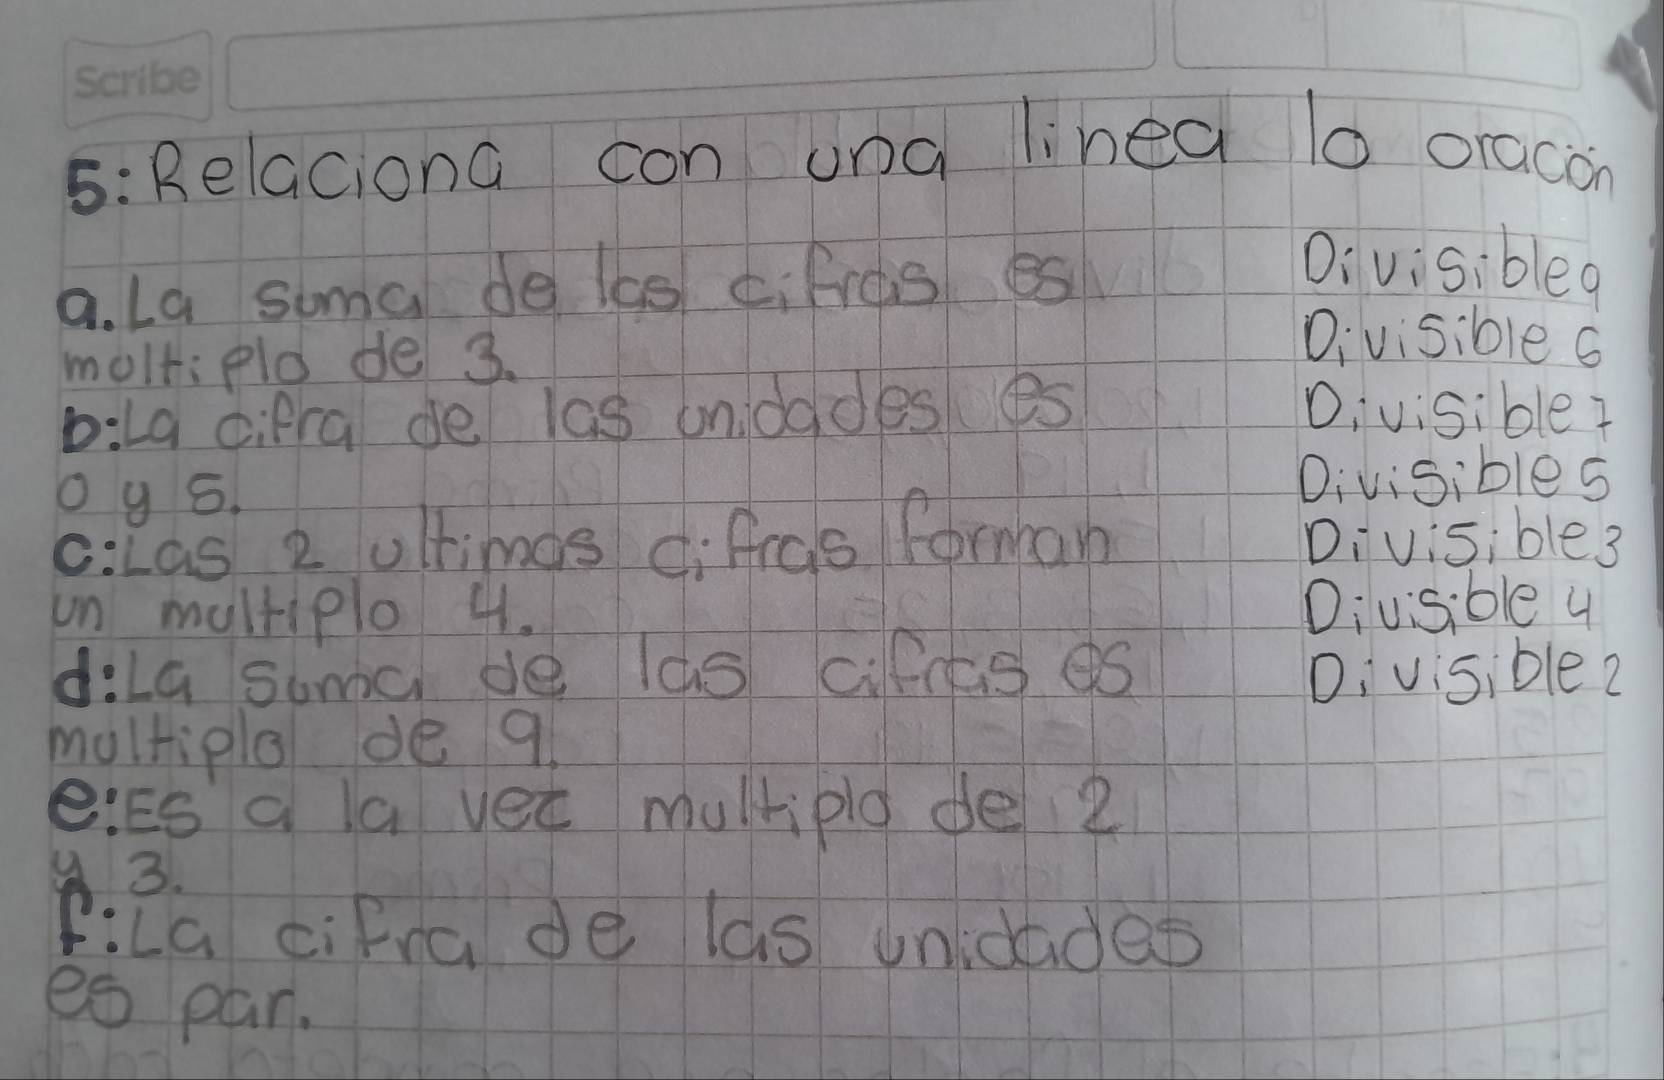 Scribe
5: Relaciona con una linea lo oración
a. La suma de las cifras es
moltiplo de 3.
b: La cifra de las unidades es
0 y 5.
C: Las 2 ultimas cifras forman
un multiplo 4.
d: La suma de las cifras es
multiplo de 9.
e: Es a la vez multiplo de 2
y 3.
f: La cifra de las unidades
es par.
Divisible 9
Divisible 6
Divisible 7
Divisible 5
Divisible 3
Divisible 4
Divisible 2